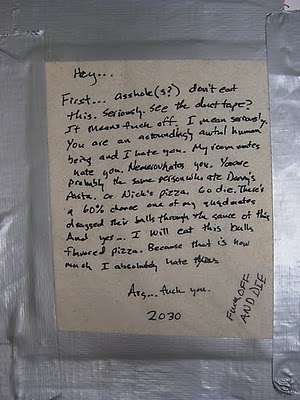 Hey...
First... asshole(s?) don't eat
this. Seriously. See the duct tape?
It means fuck off. I mean seriously.
You are an astoundingly awful human
being and I hate you. My roommates
hate you. Nemerov hates you. You're
probably the same person who ate Danny's
Pasta. Or Nick's pizza. Go die. There's
a 60% chance one of my quadmates
dragged their balls through the sauce of this
And yes... I will eat this balls
flavored pizza. Because that is how
much I absolutely hate
Arg... fuck you.
2030
Fuck OFF
AND DIE